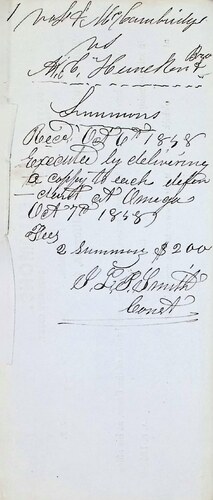 1
J McCambridge
vs
A. C. Huneken & Bro
Summons
Recd Oct 6th 1858
Executed by delivering
a coppy to each defen
-dent at Omega
Oct 7th 1858
Fees
2 Summons $2.00
S. L. P. Smith
Const